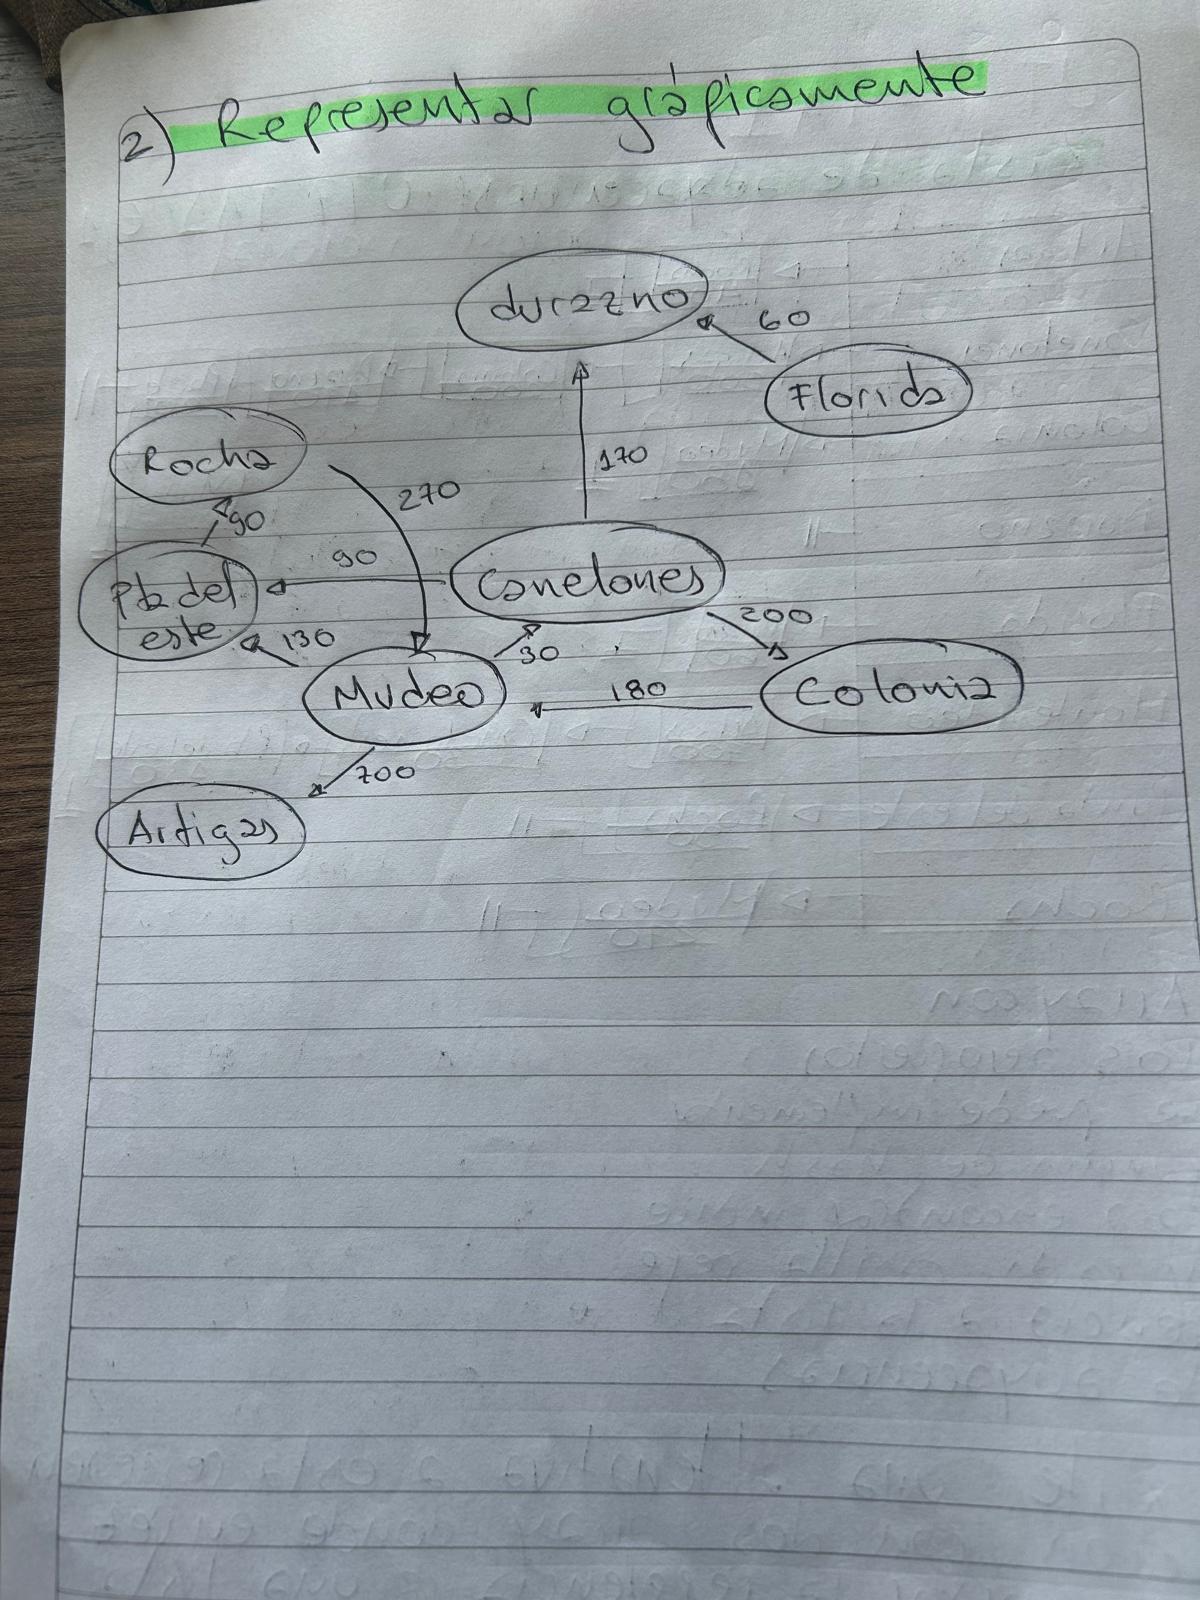 2) Representar gráficamente
durazno
60
Florida
170
Rocha
270
90
90
Canelones
Pta del
este
130
30
200
Mvdeo
180
Colonia
700
Artigas